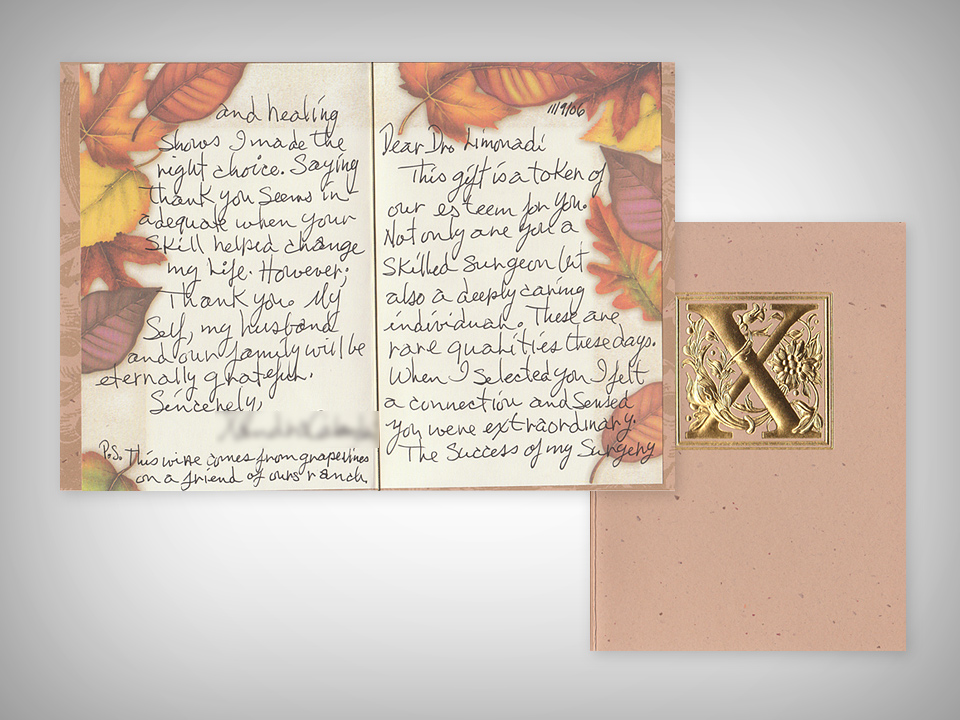 11/9/06
Dear Dr. Limonadi
This gift is a token of
our esteem for you.
Not only are you a
skilled surgeon but
also a deeply caring
individual. These are
rare qualities these days.
When I selected you I felt
a connection and sensed
you were extraordinary.
The success of my surgery
and healing
shows I made the
right choice. Saying
thank you seems in-
adequate when your
skill helped change
my life. However;
Thank you. My
self, my husband
and our family will be
eternally grateful.
Sincerely,
P.S. This wine comes from grapevines
on a friend of ours ranch.
X